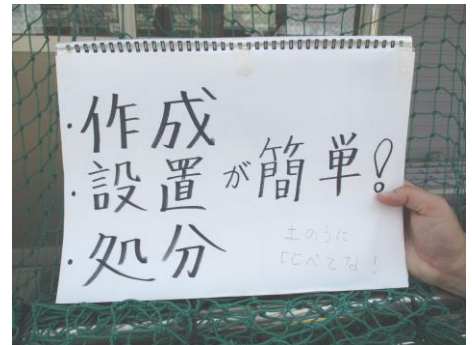 ・作成
・設置が簡単!
・処分
土のうに
比べてな!